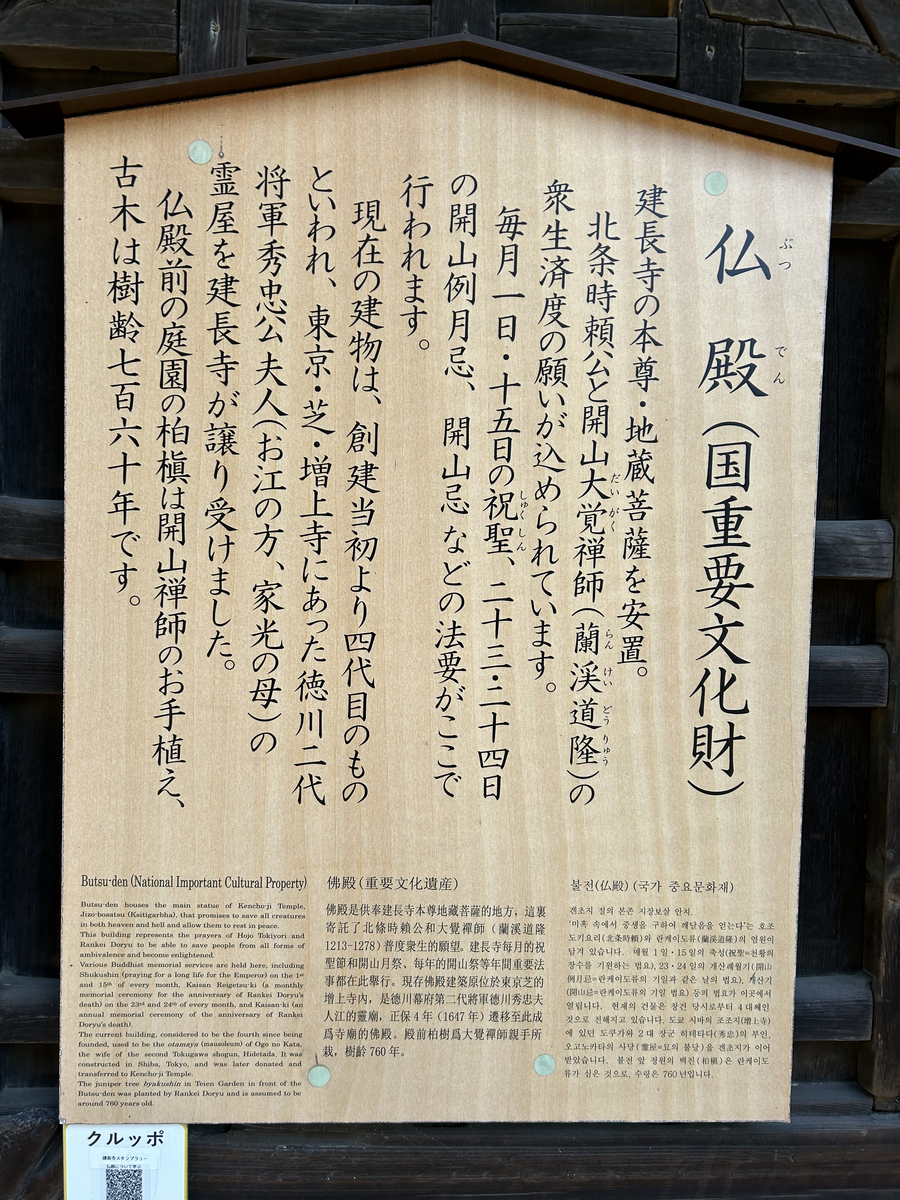 仏殿(国重要文化財)
ぶつ
でん
建長寺の本尊・地蔵菩薩を安置。
北条時頼公と開山大覚禅師(蘭渓道隆)の
だいがく
らんけいどうりゅう
衆生済度の願いが込められています。
毎月一日・十五日の祝聖、二十三・二十四日
しゅくしん
の開山例月忌、開山忌などの法要がここで
行われます。
現在の建物は、創建当初より四代目のもの
といわれ、東京・芝・増上寺にあった徳川二代
将軍秀忠公夫人(お江の方、家光の母)の
霊屋を建長寺が譲り受けました。
仏殿前の庭園の柏槇は開山禅師のお手植え、
古木は樹齢七百六十年です。
Butsu-den (National Important Cultural Property)
Butsu-den houses the main statue of Kencho-ji Temple,
Jizo-bosatsu (Ksitigarbha), that promises to save all creatures
in both heaven and hell and allow them to rest in peace.
This building represents the prayers of Hojo Tokiyori and
Rankei Doryu to be able to save people from all forms of
ambivalence and become enlightened.
Various Buddhist memorial services are held here, including
Shukushin (praying for a long life for the Emperor) on the 1st
and 15th of every month, Kaisan Reigetsu-ki (a monthly
memorial ceremony for the anniversary of Rankei Doryu's
death) on the 23rd and 24th of every month, and Kaisan-ki (an
annual memorial ceremony of the anniversary of Rankei
Doryu's death).
The current building, considered to be the fourth since being
founded, used to be the otamaya (mausoleum) of Ogo no Kata,
the wife of the second Tokugawa shogun, Hidetada. It was
constructed in Shiba, Tokyo, and was later donated and
transferred to Kencho-ji Temple.
The juniper tree byakushin in Teien Garden in front of the
Butsu-den was planted by Rankei Doryu and is assumed to be
around 760 years old.
佛殿(重要文化遺産)
佛殿是供奉建長寺本尊地藏菩薩的地方，這裏
寄託了北條時賴公和大覺禪師(蘭溪道隆
1213-1278)普度衆生的願望。建長寺每月的祝
聖節和開山月祭、每年的開山祭等年間重要法
事都在此舉行。現存佛殿建築原位於東京芝的
增上寺內，是德川幕府第二代將軍德川秀忠夫
人江的靈廟，正保4年(1647年)遷移至此成
爲寺廟的佛殿。殿前柏樹爲大覺禪師親手所
栽，樹齡760年。
불전(仏殿)(국가 중요문화재)
겐초지 절의 본존 지장보살 안치.
'미혹 속에서 중생을 구하여 깨달음을 얻는다'는 호조
도키요리(北条時頼)와 란케이도류(蘭渓道隆)의 염원이
담겨 있습니다. 매월 1일・15일의 축성(祝聖=천황의
장수를 기원하는 법요), 23・24일의 개산례월기(開山
例月忌=란케이도류의 기일과 같은 날의 법요), 개산기
(開山忌=란케이도류의 기일 법요) 등의 법요가 이곳에서
열립니다. 현재의 건물은 창건 당시로부터 4대째인
것으로 전해지고 있습니다. 도쿄 시바의 조조지(增上寺)
에 있던 도쿠가와 2대 장군 히데타다(秀忠)의 부인,
오고노카타의 사당(霊屋=묘의 불당)을 겐초지가 이어
받았습니다. 불전 앞 정원의 백진(柏槇)은 란케이도
류가 심은 것으로, 수령은 760년입니다.
クルッポ
建長寺スタンプラリー
仏殿について学ぶ